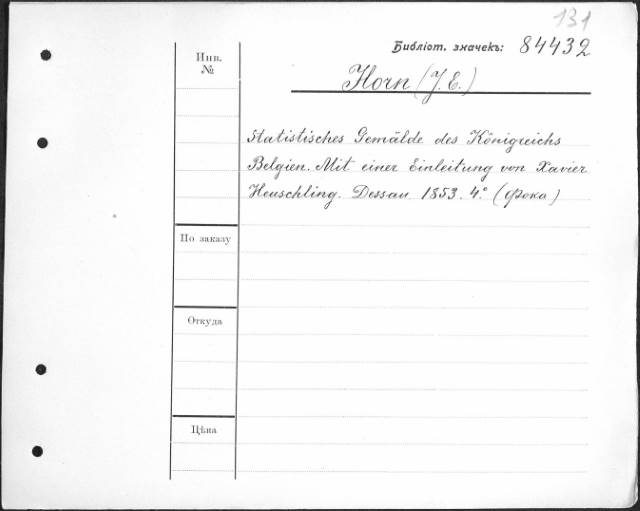 131
Библіот. значекъ: 84432
Инв.
№
Horn (J. E.)
Statistisches Gemälde des Königreichs
Belgien. Mit einer Einleitung von Xavier
Heuschling. Dessau 1853. 4.° (Фока)
По заказу
Откуда
Цѣна